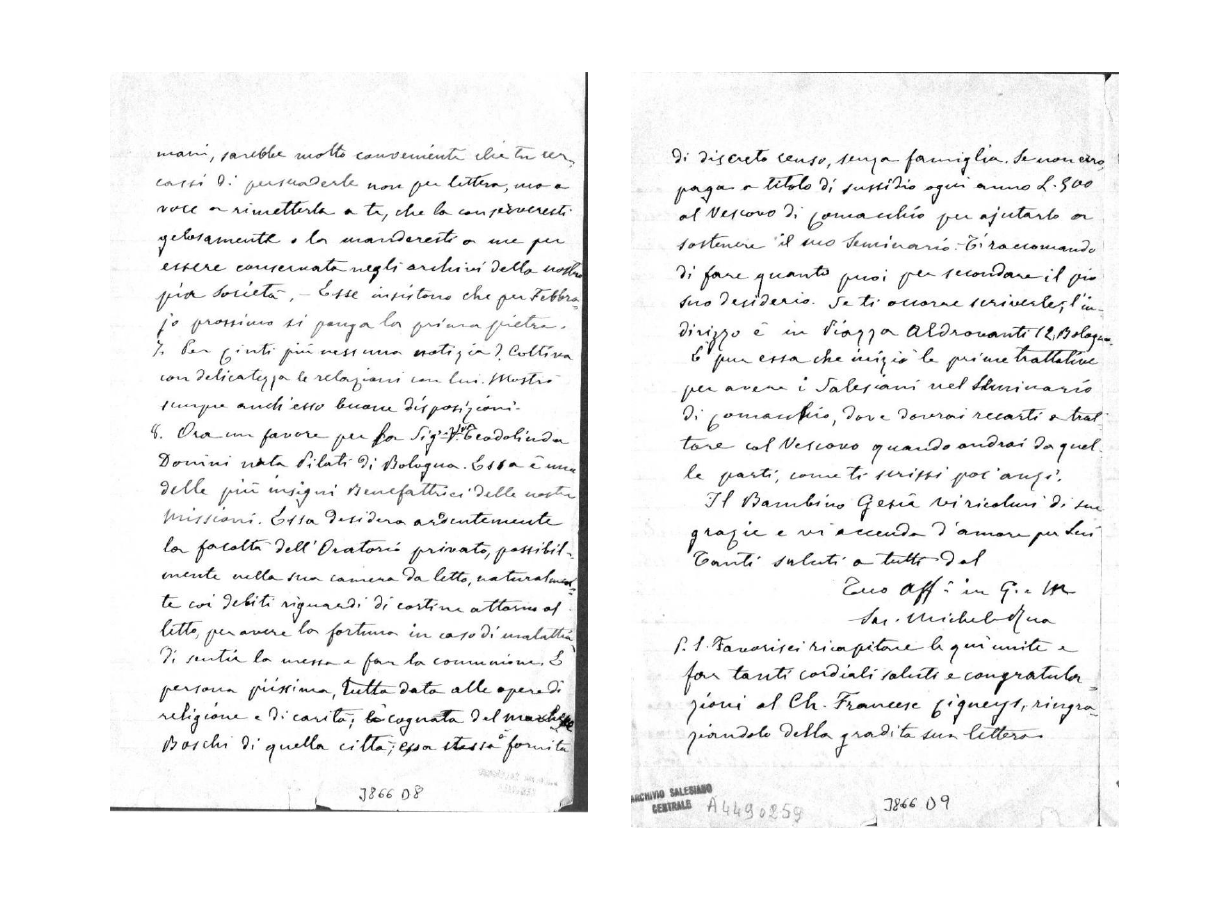 mani, sarebbe molto conveniente che tu cer-
cassi di persuaderle non per lettera, ma a
voce a rimetterla a te, che la conserveresti
gelosamente o la manderesti a me per
essere conservata negli archivi della nostra
pia Società, - Esse insistono che per Febbra-
jo prossimo si ponga la prima pietra.
7. Per Cinti più nessuna notizia? Coltiva
con delicatezza le relazioni con lui. Mostrò
sempre anch'esso buone disposizioni.
8. Ora un favore per la Sig.ra Teodolinda
Donini nata Pilati di Bologna. Essa è una
delle più insigni Benefattrici delle nostre
Missioni. Essa desidera ardentemente
la facoltà dell'Oratorio privato, possibil-
mente nella sua camera da letto, naturalmen-
te coi debiti riguardi di cortine attorno al
letto, per avere la fortuna in caso di malattia
di sentir la messa e far la comunione. È
persona piissima, tutta data alle opere di
religione e di carità; la cognata del marchese
Boschi di quella città; essa stessa è fornita
J866 D8
di discreto censo, senza famiglia. Se non erro,
paga a titolo di sussidio ogni anno L. 500
al Vescovo di Comacchio per ajutarlo a
sostenere il suo Seminario. Ti raccomando
di fare quanto puoi per secondare il pio
suo desiderio. Se ti occorre scriverle, l'in-
dirizzo è in Piazza Aldrovanti 12, Bologna.
È pur essa che iniziò le prime trattative
per avere i Salesiani nel Seminario
di Comacchio, dove dovrai recarti a trat-
tare col Vescovo quando andrai da quel-
le parti, come ti scrissi poc'anzi.
Il Bambino Gesù vi ricolmi di sue
grazie e vi accenda d'amore per Lui
Tanti saluti a tutti dal
Tuo Aff. in G. e M
Sac. Michele Rua
P. S. Favorisci ricapitare le qui unite e
far tanti cordiali saluti e congratula-
zioni al Ch. Francesc Cigneys, ringra-
ziandolo della gradita sua lettera.
ARCHIVIO SALESIANO
CENTRALE
A4490259
J866 D9